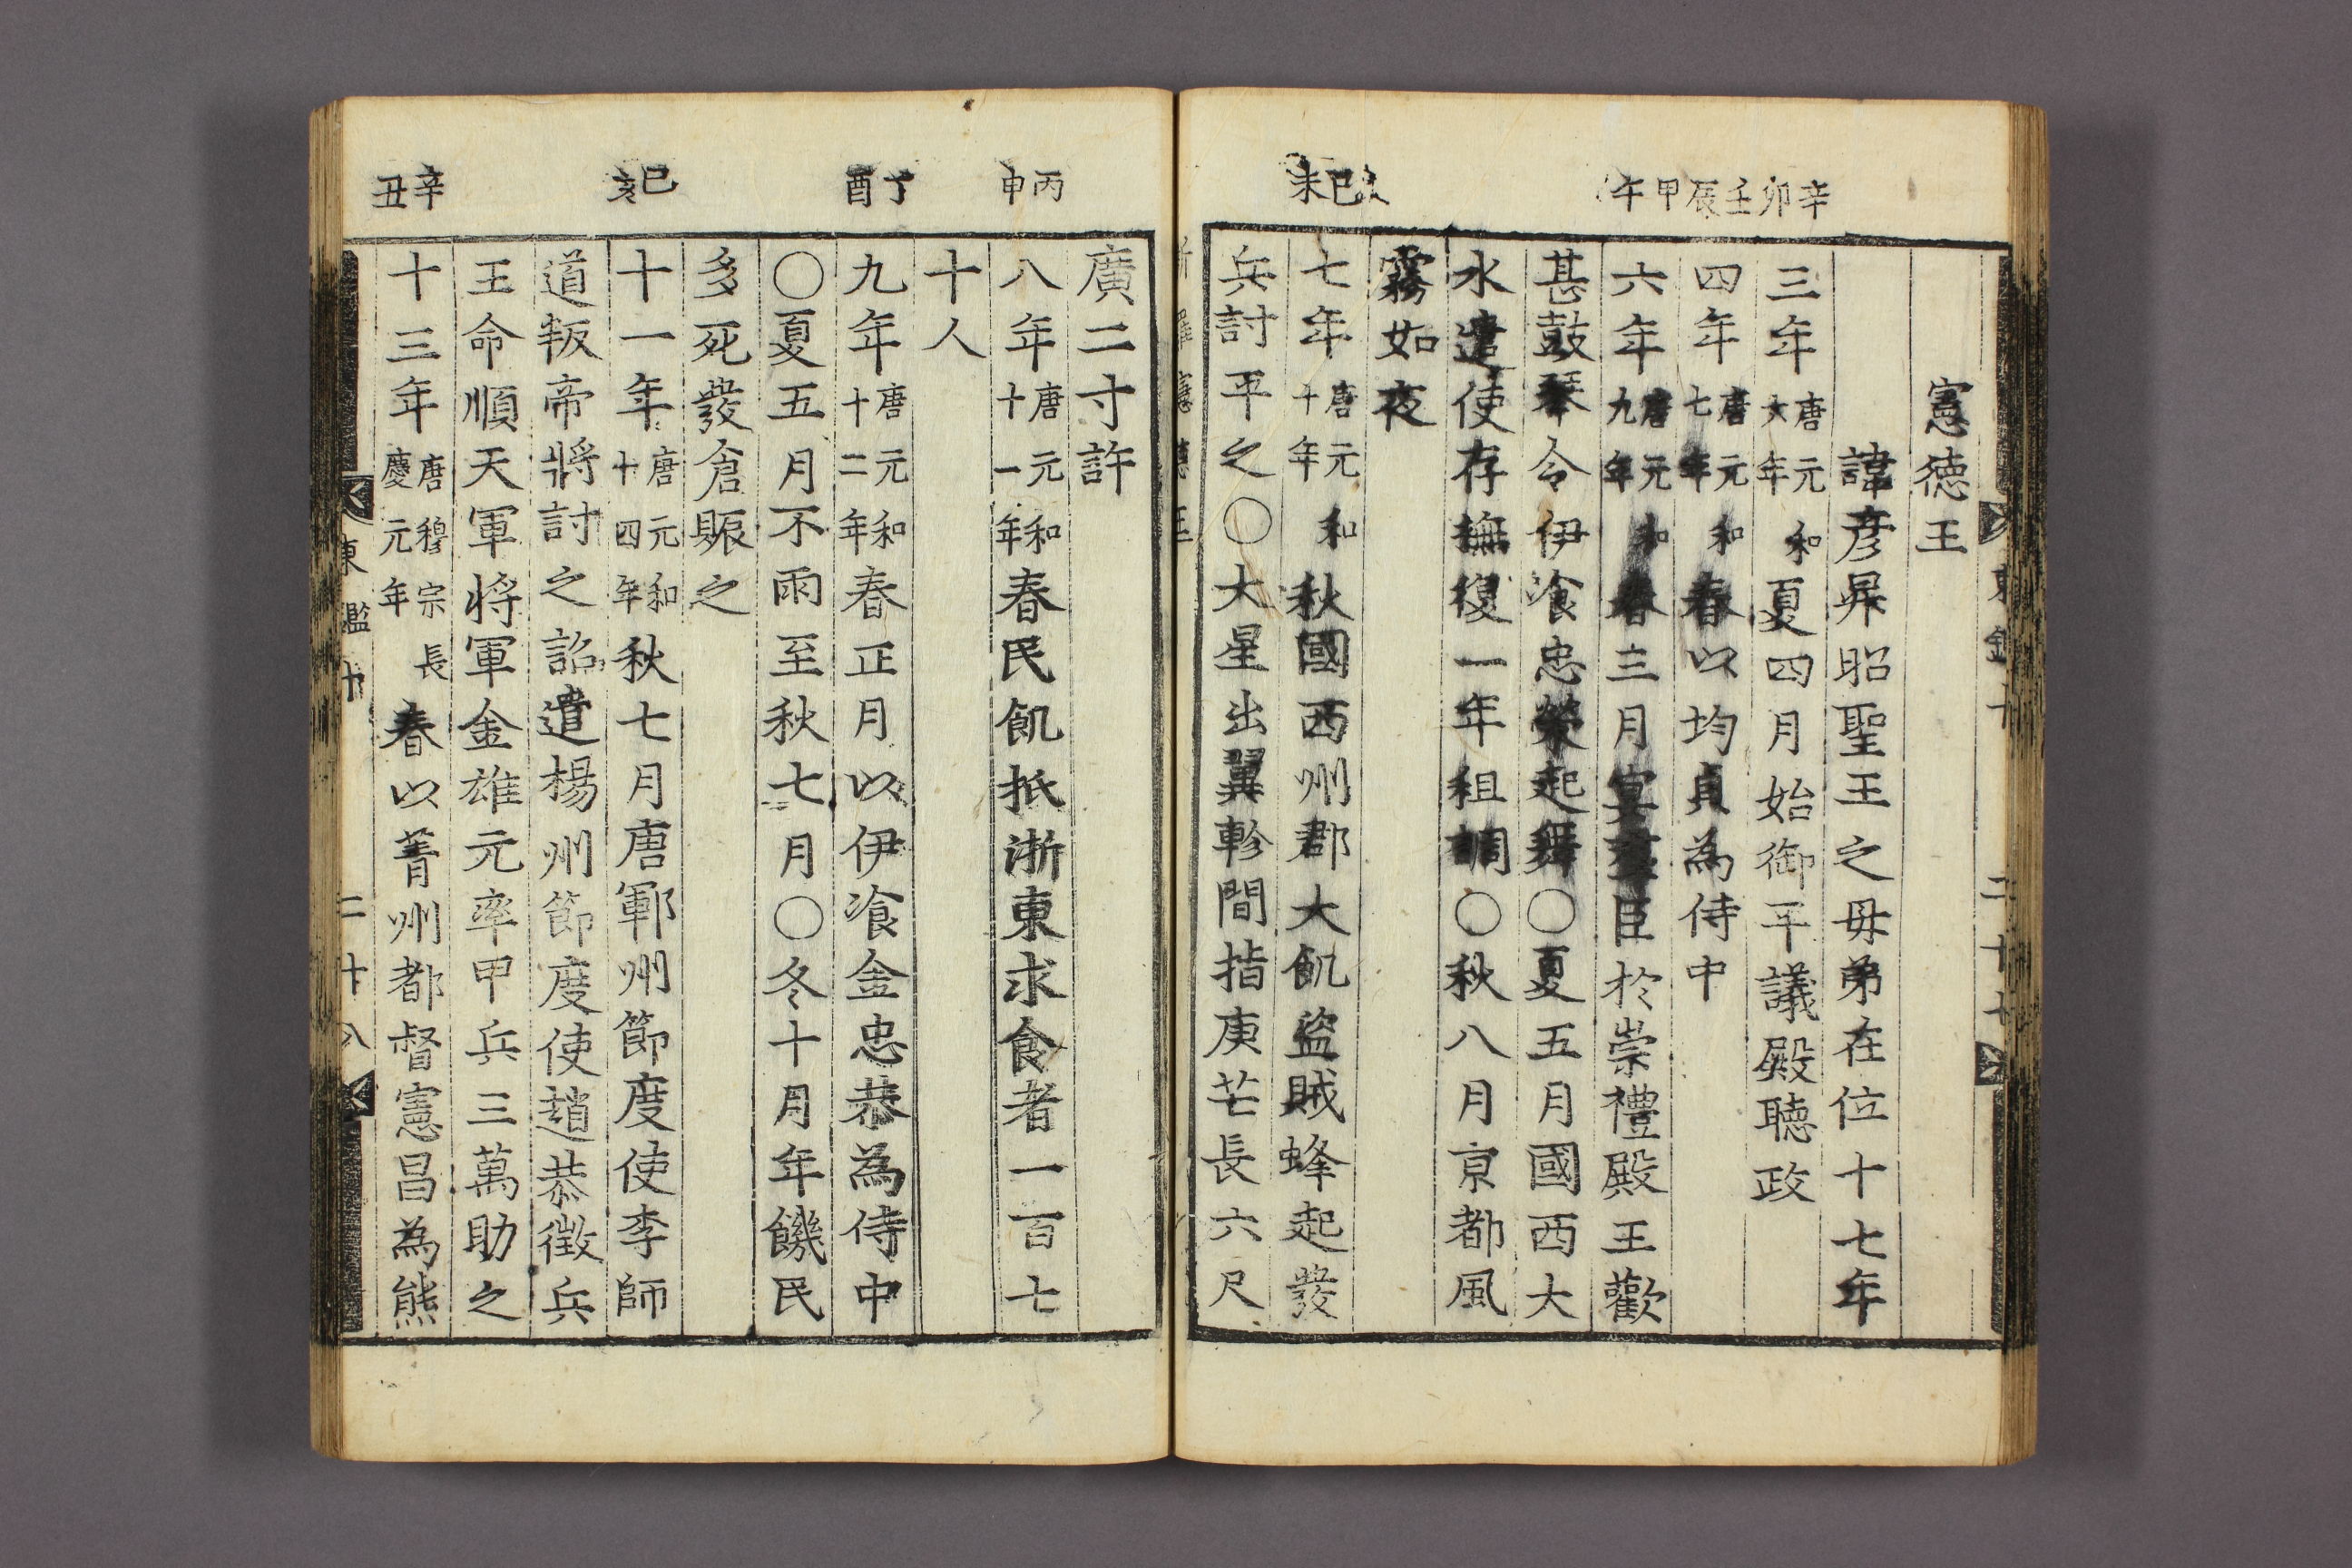 辛卯壬辰甲午
己未
憲德王
諱彦昇昭聖王之母弟在位十七年
三年唐元和六年夏四月始御平議殿聽政
四年唐元和七年春以均貞為侍中
六年唐元和九年春三月宴羣臣於崇禮殿王歡
甚鼓琴令伊飡忠榮起舞○夏五月國西大
水遣使存撫復一年租調○秋八月京都風
霧如夜
七年唐元和十年秋國西州郡大飢盜賊蜂起發
兵討平之○大星出翼軫間指庚芒長六尺
丙申
丁酉
己亥
辛丑
廣二寸許
八年唐元和十一年春民飢抵浙東求食者一百七
十人
九年唐元和十二年春正月以伊飡金忠恭為侍中
○夏五月不雨至秋七月○冬十月年饑民
多死發倉賑之
十一年唐元和十四年秋七月唐鄆州節度使李師
道叛帝將討之詔遣楊州節度使趙恭徵兵
王命順天軍將軍金雄元率甲兵三萬助之
十三年唐穆宗長慶元年春以菁州都督憲昌為熊
東鑑十
二十八